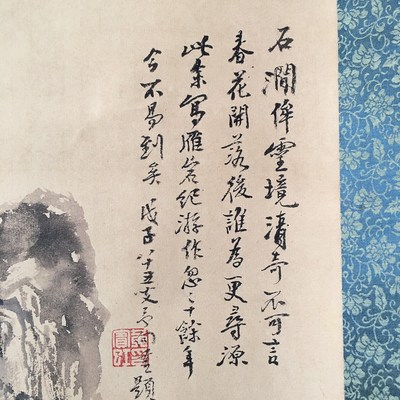 石澗俾靈境清奇不可言
春花開落後誰為更尋源
此余寫雁岩紀游作忽三十餘年
今不易到矣戊子
題